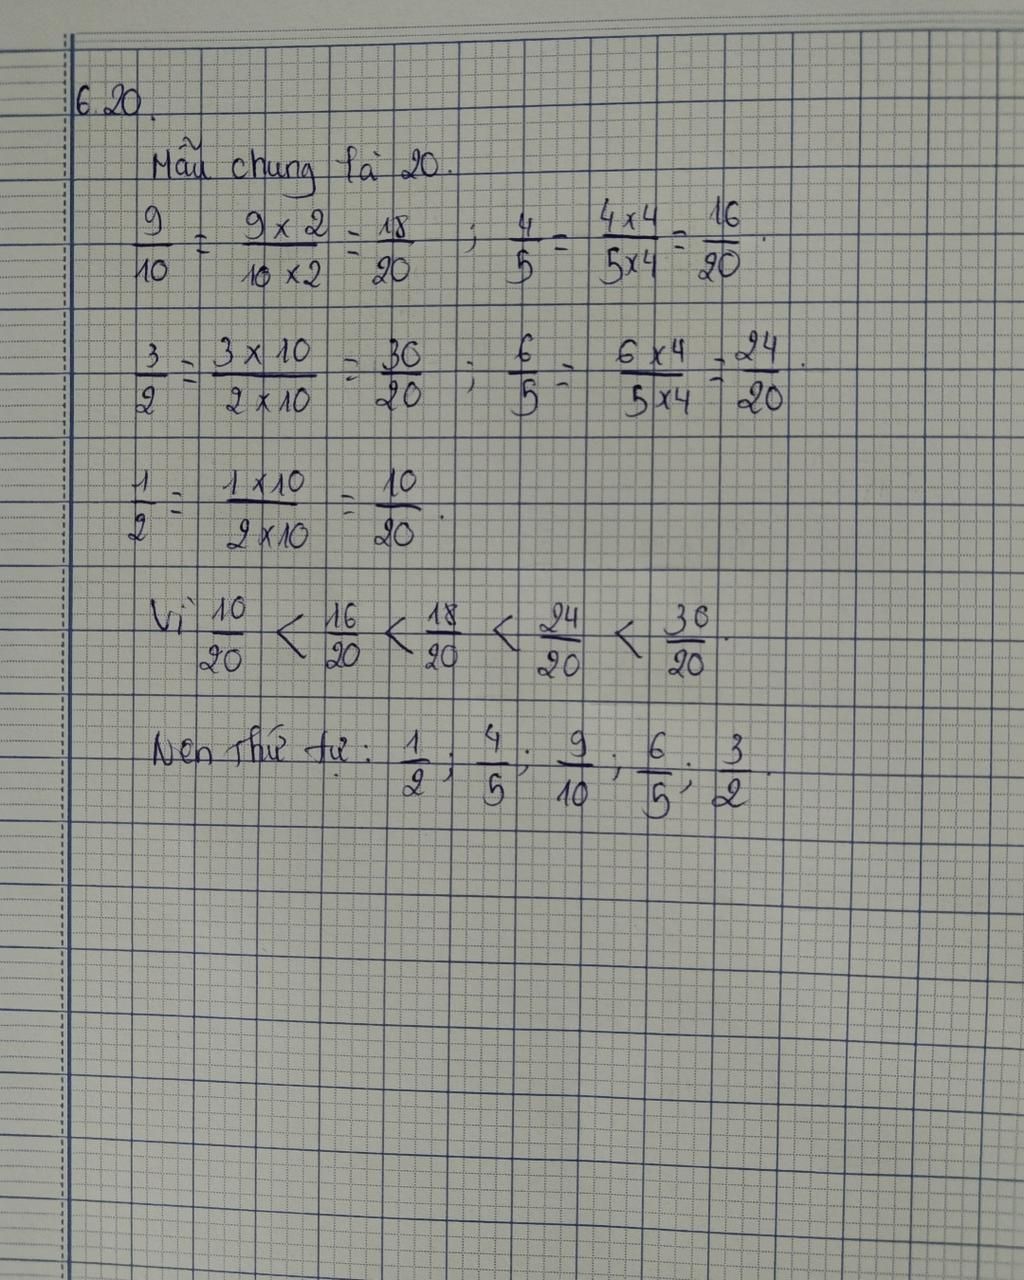 6.20.
Mẫu chung là 20.
9/10 = (9 x 2)/(10 x 2) = 18/20 ; 4/5 = (4 x 4)/(5 x 4) = 16/20.
3/2 = (3 x 10)/(2 x 10) = 30/20 ; 6/5 = (6 x 4)/(5 x 4) = 24/20.
1/2 = (1 x 10)/(2 x 10) = 10/20.
Vì 10/20 < 16/20 < 18/20 < 24/20 < 30/20.
Nên thứ tự: 1/2 ; 4/5 ; 9/10 ; 6/5 ; 3/2.